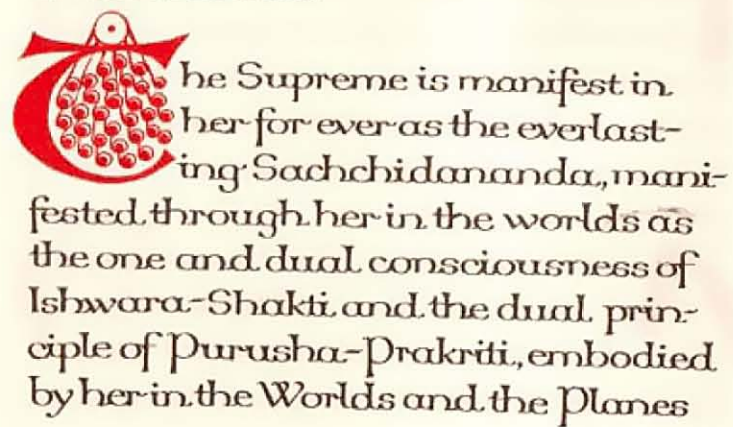 The Supreme is manifest in
her for ever as the everlast-
ing Sachchidananda, mani-
fested through her in the worlds as
the one and dual consciousness of
Ishwara-Shakti and the dual prin-
ciple of Purusha-Prakriti, embodied
by her in the Worlds and the Planes